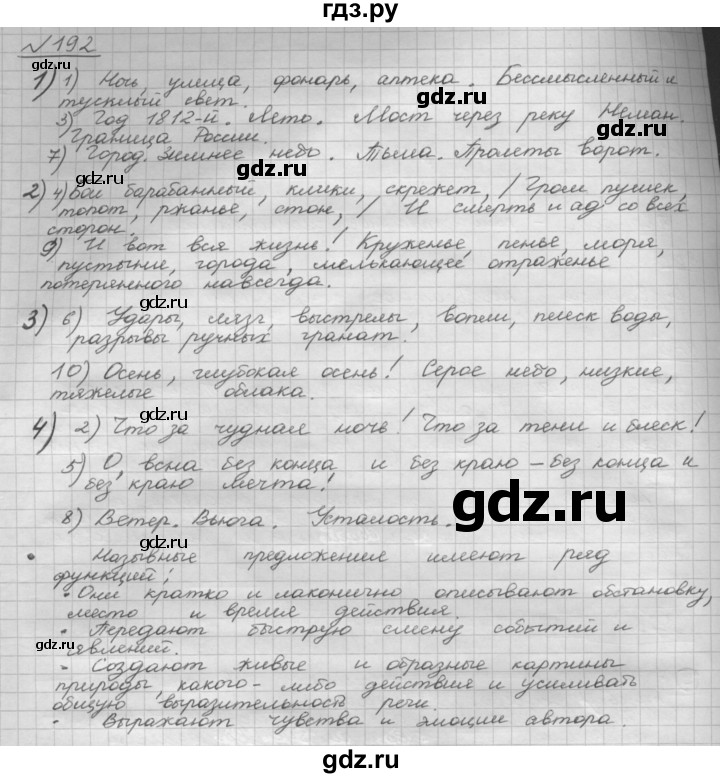 гдз.ру
№192
1) 1) Ночь, улица, фонарь, аптека. Бессмысленный и
тусклый свет.
3) Год 1812-й. Лето. Мост через реку Неман.
Граница России.
7) Город. Зимнее небо. Тьма. Пролеты ворот.
2) 4) Бой барабанный, клики, скрежет, / Гром пушек,
топот, ржанье, стон, / И смерть и ад со всех
сторон.
9) И вот вся жизнь! Круженье, пенье, моря,
пустыни, города, мелькающее отраженье
потерянного навсегда.
3) 6) Удары, лязг, выстрелы, вопли, плеск воды,
разрывы ручных гранат.
10) Осень, глубокая осень! Серое небо, низкие,
тяжелые облака.
4) 2) Что за чудная ночь! Что за тени и блеск!
5) О, весна без конца и без краю – без конца и
без краю мечта!
8) Ветер. Вьюга. Усталость.
• Назывные предложения имеют ряд
функций:
• Они кратко и лаконично описывают обстановку,
место и время действия.
• Передают быструю смену событий и
явлений.
• Создают живые и образные картины
природы, какого-либо действия и усиливать
общую выразительность речи.
• Выражают чувства и эмоции автора.
gdz.ru
gdz.ru
gdz.ru
gdz.ru
gdz.ru
gdz.ru
gdz.ru
gdz.ru
gdz.ru
gdz.ru
gdz.ru
gdz.ru
gdz.ru